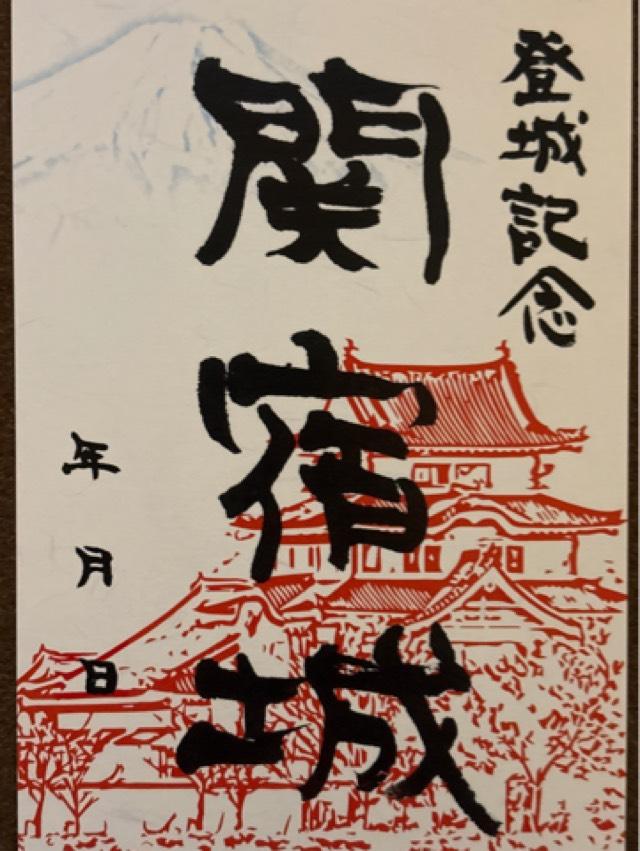 登城記念
関宿城
年月日